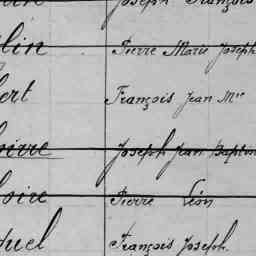 Joseph François
lin Pierre Marie Joseph
bert François Jean Mie
oirre Joseph Jean Baptist
loire Pierre Léon
quel François Joseph